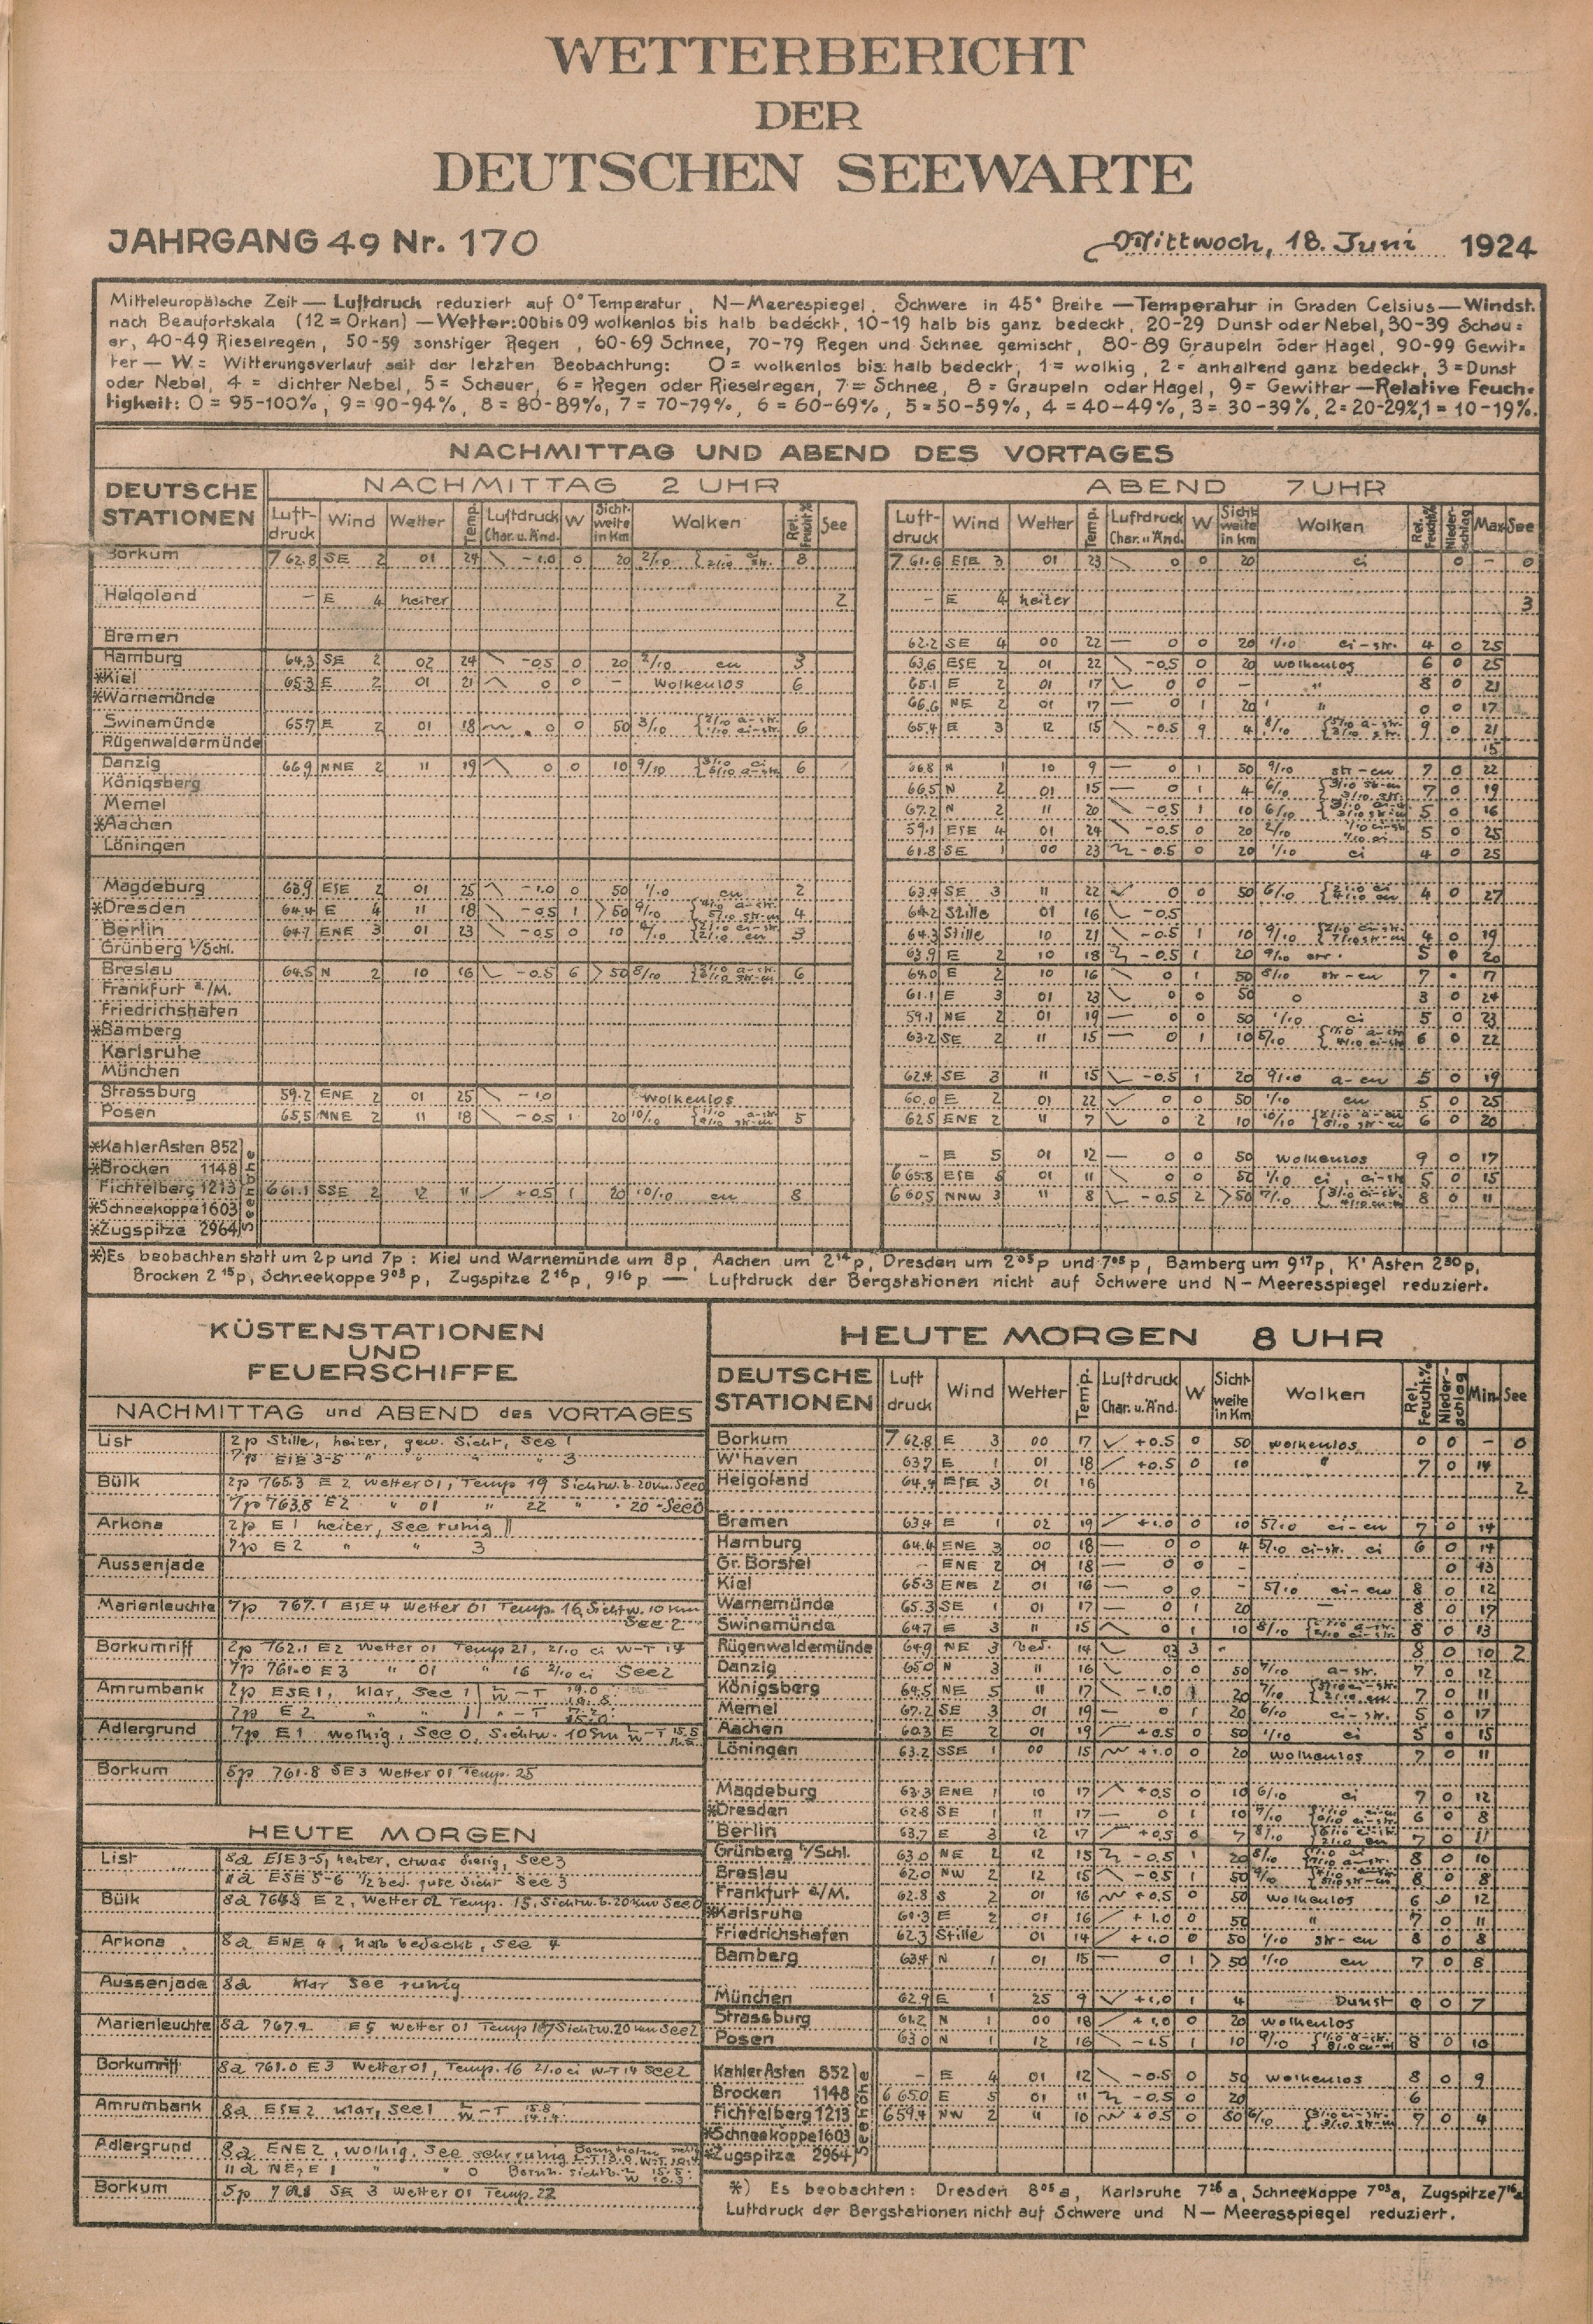 WETTERBERICHT
DER
DEUTSCHEN SEEWARTE
JAHRGANG 49 Nr. 170 Mittwoch, 18. Juni 1924
Mitteleuropäische Zeit — Luftdruck reduziert auf 0° Temperatur, N—Meerespiegel, Schwere in 45° Breite — Temperatur in Graden Celsius — Windst.
nach Beaufortskala (12 = Orkan) — Wetter: 00 bis 09 wolkenlos bis halb bedeckt, 10-19 halb bis ganz bedeckt, 20-29 Dunst oder Nebel, 30-39 Schau=
er, 40-49 Rieselregen, 50-59 sonstiger Regen, 60-69 Schnee, 70-79 Regen und Schnee gemischt, 80-89 Graupeln oder Hagel, 90-99 Gewit=
ter — W = Witterungsverlauf seit der letzten Beobachtung: 0 = wolkenlos bis halb bedeckt, 1 = wolkig, 2 = anhaltend ganz bedeckt, 3 = Dunst
oder Nebel, 4 = dichter Nebel, 5 = Schauer, 6 = Regen oder Rieselregen, 7 = Schnee, 8 = Graupeln oder Hagel, 9 = Gewitter — Relative Feuch=
tigkeit: 0 = 95-100%, 9 = 90-94%, 8 = 80-89%, 7 = 70-79%, 6 = 60-69%, 5 = 50-59%, 4 = 40-49%, 3 = 30-39%, 2 = 20-29%, 1 = 10-19%.
NACHMITTAG UND ABEND DES VORTAGES
DEUTSCHE STATIONEN
NACHMITTAG 2 UHR
Luft-druck Wind Wetter Temp. Luftdruck Char. u. Änd. W Sicht-weite in Km Wolken Rel. Feucht% See
ABEND 7 UHR
Luft-druck Wind Wetter Temp. Luftdruck Char. u. Änd. W Sicht-weite in Km Wolken Rel. Feucht% Nieder-schlag Max See
Borkum 762.8 SE 2 01 24 -1.0 0 20 2/10 8 761.6 ESE 3 01 23 0 0 20 ci 0 - 0
Helgoland - E 4 heiter 2 - E 4 heiter 3
Bremen 62.2 SE 4 00 22 0 0 20 1/10 ci-str. 4 0 25
Hamburg 64.3 SE 2 02 24 -0.5 0 20 2/10 cu 3 63.6 ESE 2 01 22 -0.5 0 20 wolkenlos 6 0 25
*Kiel 65.3 E 2 01 21 0 0 - wolkenlos 6 65.1 E 2 01 17 0 0 - " 8 0 21
*Warnemünde 66.6 NE 2 01 17 0 1 20 " 0 0 17
Swinemünde 65.7 E 2 01 18 0 0 50 3/10 6 65.4 E 3 12 15 -0.5 9 4 8/10 9 0 21
Rügenwaldermünde 15
Danzig 66.9 NNE 2 11 19 0 0 10 9/10 6 66.8 N 1 10 9 0 1 50 9/10 str-cu 7 0 22
Königsberg 66.5 N 2 01 15 0 1 4 6/10 7 0 19
Memel 67.2 N 2 11 20 -0.5 1 10 6/10 5 0 16
*Aachen 59.1 ESE 4 01 24 -0.5 0 20 2/10 5 0 25
Löningen 61.8 SE 1 00 23 -0.5 0 20 1/10 ci 4 0 25
Magdeburg 63.9 ESE 2 01 25 -1.0 0 50 1/10 cu 2 63.4 SE 3 11 22 0 0 50 6/10 4 0 27
*Dresden 64.4 E 4 11 18 -0.5 1 >50 9/10 4 64.2 Stille 01 16 -0.5
Berlin 64.7 ENE 3 01 23 -0.5 0 10 4/10 3 64.3 Stille 10 21 -0.5 1 10 9/10 4 0 19
Grünberg i/Schl. 63.9 E 2 10 18 -0.5 1 20 9/10 5 0 20
Breslau 64.5 N 2 10 16 -0.5 6 >50 8/10 6 64.0 E 2 10 16 0 1 50 8/10 str-cu 7 17
Frankfurt a./M. 61.1 E 3 01 23 0 0 50 0 3 0 24
Friedrichshafen 59.1 NE 2 01 19 0 0 50 1/10 ci 5 0 23
*Bamberg 63.2 SE 2 11 15 0 1 10 5/10 6 0 22
Karlsruhe
München 62.4 SE 3 11 15 -0.5 1 20 9/10 a-cu 5 0 19
Strassburg 59.2 ENE 2 01 25 -1.0 wolkenlos 60.0 E 2 01 22 0 0 50 1/10 cu 5 0 25
Posen 65.5 NNE 2 11 18 -0.5 1 20 10/10 5 62.5 ENE 2 11 7 0 2 10 10/10 6 0 20
Seehöhe
*Kahler Asten 852 - E 5 01 12 0 0 50 wolkenlos 9 0 17
*Brocken 1148 665.8 ESE 5 01 11 0 0 50 1/10 ci, ci-str 5 0 15
Fichtelberg 1213 661.1 SSE 2 12 11 +0.5 1 20 10/10 cu 8 660.5 NNW 3 11 8 -0.5 2 >50 7/10 8 0 11
*Schneekoppe 1603
*Zugspitze 2964
*) Es beobachten statt um 2p und 7p: Kiel und Warnemünde um 8p, Aachen um 2¹⁴p, Dresden um 2⁰⁵p und 7⁰⁵p, Bamberg um 9¹⁷p, K' Asten 2³⁰p,
Brocken 2¹⁵p, Schneekoppe 9⁰³p, Zugspitze 2¹⁶p, 9¹⁶p — Luftdruck der Bergstationen nicht auf Schwere und N—Meeresspiegel reduziert.
KÜSTENSTATIONEN
UND
FEUERSCHIFFE
NACHMITTAG und ABEND des VORTAGES
List 2p Stille, heiter, gew. Sicht, See 1
7p ESE 3-5 " " " 3
Bülk 2p 765.3 E 2 Wetter 01, Temp 19 Sichtw. b. 20 km See 0
7p 763.8 E 2 " 01 " 22 " 20 See 0
Arkona 2p E 1 heiter, See ruhig
7p E 2 " " 3
Aussenjade
Marienleuchte 7p 767.1 ESE 4 Wetter 01 Temp. 16, Sichtw. 10 km
See 2
Borkumriff 2p 762.1 E 2 Wetter 01 Temp 21, 2/10 ci W-T 14
7p 761.0 E 3 " 01 " 16 2/10 ci See 2
Amrumbank 2p ESE 1, klar, See 1
7p E 2 " " 1
Adlergrund 7p E 1 wolkig, See 0, Sichtw. 10 Sm
Borkum 5p 761.8 SE 3 Wetter 01 Temp. 25
HEUTE MORGEN
List 8a ESE 3-5, heiter, etwas diesig, See 3
11a ESE 5-6 1/2 bed. gute Sicht See 3
Bülk 8a 764.8 E 2, Wetter 02 Temp. 15, Sichtw. b. 20 km See 0
Arkona 8a ENE 4, halb bedeckt, See 4
Aussenjade 8a klar See ruhig
Marienleuchte 8a 767.2 E 5 Wetter 01 Temp Sichtw. 20 km See 2
Borkumriff 8a 761.0 E 3 Wetter 01, Temp. 16 2/10 ci W-T 14 See 2
Amrumbank 8a ESE 2 klar, See 1
Adlergrund 8a ENE 2, wolkig, See sehr ruhig
11a NE, E 1 " " 0
Borkum 5p SE 3 Wetter 01 Temp. 22
HEUTE MORGEN 8 UHR
DEUTSCHE STATIONEN Luft druck Wind Wetter Temp. Luftdruck Char. u. Änd. W Sicht-weite in Km Wolken Rel. Feucht.% Nieder-schlag Min See
Borkum 762.8 E 3 00 17 +0.5 0 50 wolkenlos 0 0 - 0
W'haven 63.7 E 1 01 18 +0.5 0 10 " 7 0 14
Helgoland 64.4 ESE 3 01 16 2
Bremen 63.4 E 1 02 19 +1.0 0 10 5/10 ci-cu 7 0 14
Hamburg 64.4 ENE 3 00 18 0 0 4 5/10 ci-str. ci 6 0 14
Gr. Borstel ENE 2 01 18 0 0 - 0 13
Kiel 65.3 ENE 2 01 16 0 0 - 5/10 ci-cu 8 0 12
Warnemünde 65.3 SE 1 01 17 0 1 20 - 8 0 17
Swinemünde 64.7 E 3 11 15 0 1 10 8/10 8 0 13
Rügenwaldermünde 64.9 NE 3 bed. 14 3 8 0 10 2
Danzig 65.0 N 3 11 16 0 0 50 7/10 a-str. 7 0 12
Königsberg 64.5 NE 5 11 17 -1.0 1 20 7/10 7 0 11
Memel 67.2 SE 3 01 19 0 1 20 6/10 ci-str. 5 0 17
Aachen 60.3 E 2 01 19 +0.5 0 50 1/10 ci 5 0 15
Löningen 63.2 SSE 1 00 15 +1.0 0 20 wolkenlos 7 0 11
Magdeburg 63.3 ENE 1 10 17 +0.5 0 10 6/10 ci 7 0 12
*Dresden 62.8 SE 1 11 17 0 1 10 7/10 6 0 8
Berlin 63.7 E 3 12 17 +0.5 0 7 8/10 7 0 11
Grünberg i/Schl. 63.0 NE 2 12 15 -0.5 1 20 8/10 8 0 10
Breslau 62.0 NW 2 12 15 -0.5 1 50 9/10 8 0 8
Frankfurt a/M. 62.8 S 2 01 16 +0.5 0 50 wolkenlos 6 0 12
*Karlsruhe 61.3 E 2 01 16 +1.0 0 50 " 7 0 11
Friedrichshafen 62.3 Stille 01 14 +1.0 0 50 1/10 str-cu 8 0 8
Bamberg 63.4 N 1 01 15 0 1 >50 1/10 cu 7 0 8
München 62.9 E 1 25 9 +1.0 1 4 Dunst 9 0 7
Strassburg 61.2 N 1 00 18 +1.0 0 20 wolkenlos
Posen 63.0 N 1 12 16 -1.5 1 10 9/10 8 0 10
Seehöhe
Kahler Asten 852 - E 4 01 12 -0.5 0 50 wolkenlos 8 0 9
Brocken 1148 665.0 E 5 01 11 -0.5 0 20 6
Fichtelberg 1213 659.4 NW 2 11 10 +0.5 0 50 6/10 7 0 4
*Schneekoppe 1603
*Zugspitze 2964
*) Es beobachten: Dresden 8⁰⁵a, Karlsruhe 7²⁶a, Schneekoppe 7⁰³a, Zugspitze 7¹⁶a
Luftdruck der Bergstationen nicht auf Schwere und N—Meeresspiegel reduziert.